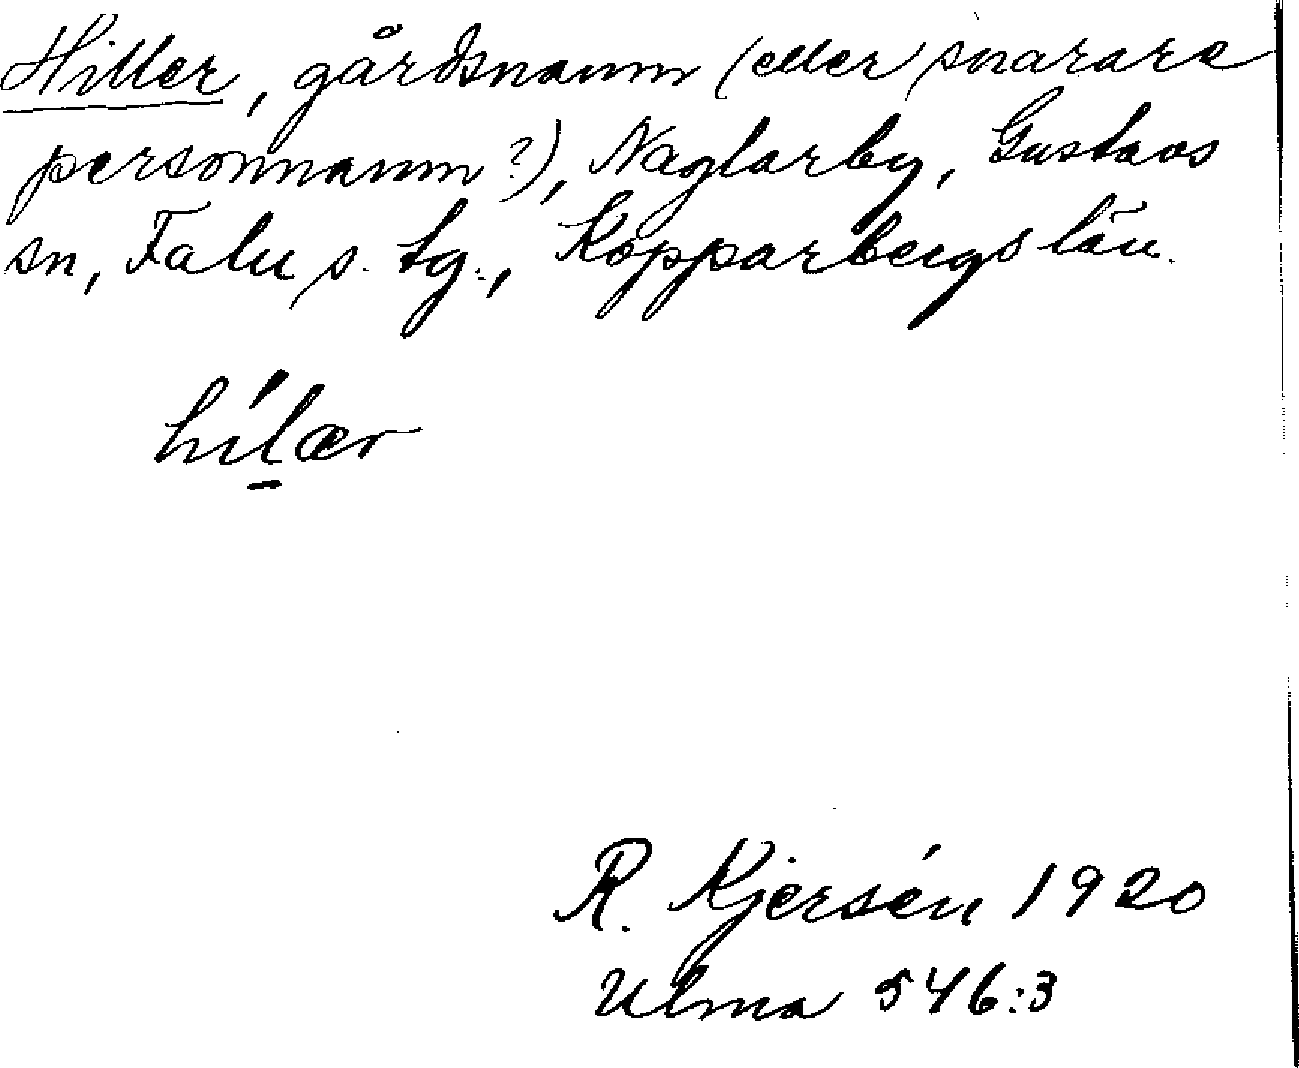 Hiller, gårdsnamn (eller snarare
personnamn?), Naglarby, Gustavs
sn, Falu s. tg., Kopparbergs län.
hílær
R. Kjersén 1920
Ulma 546:3